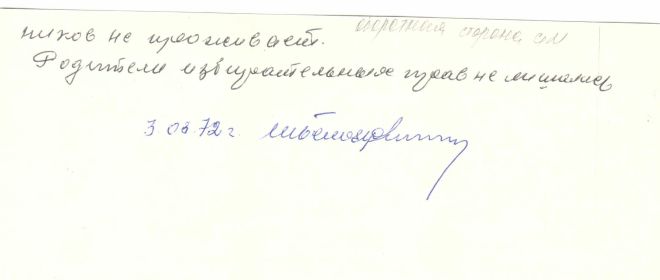 ников не проживает. оборотная сторона см
Родители избирательных прав не лишались
3 03 72 г.